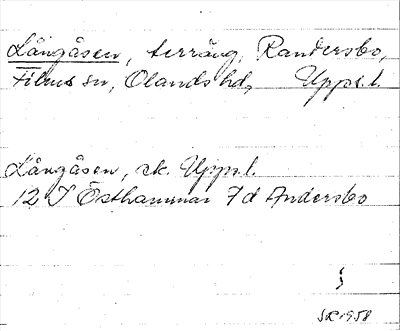 Långåsen, terräng, Randersbo,
Films sn, Olands hd, Upps.l.
Långåsen, ek. Upps.l.
12 I Östhammar 7d Andersbo
SR 1958